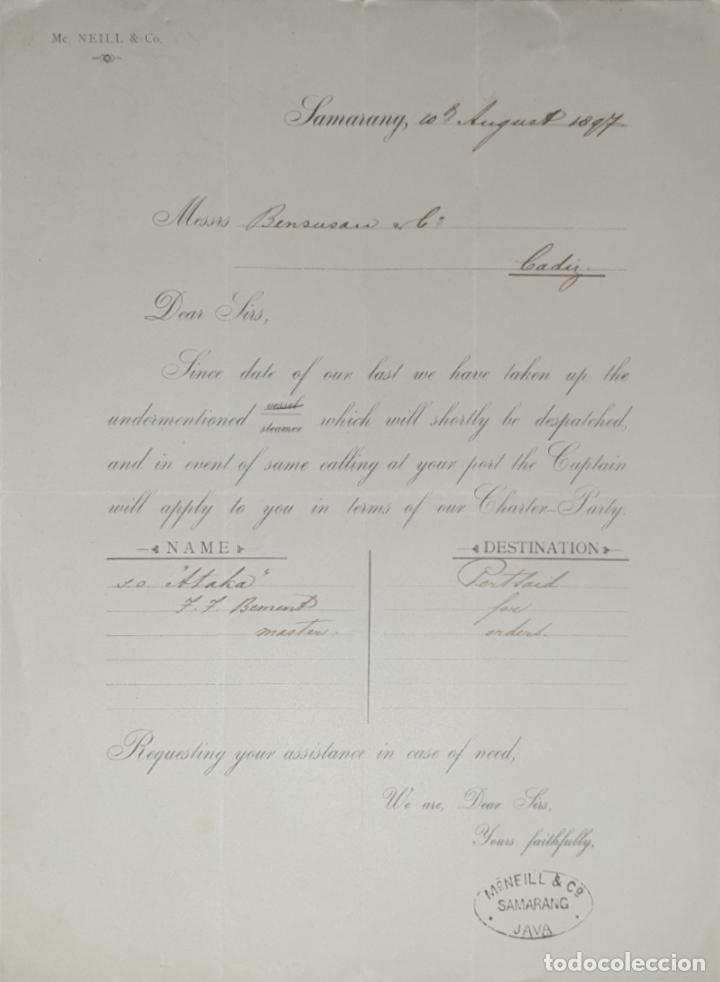 Mc. NEILL & Co.
Samarang, 10th August 1897
Messrs Bensusan & Co
Cadiz.
Dear Sirs,
Since date of our last we have taken up the
undermentioned vessel steamer which will shortly be despatched,
and in event of same calling at your port the Captain
will apply to you in terms of our Charter-Party.
NAME DESTINATION
s.s. "Ataka" Port Said
F. F. Bement for
master. orders.
Requesting your assistance in case of need,
We are, Dear Sirs,
Yours faithfully,
McNEILL & Co
SAMARANG
JAVA
todocoleccion